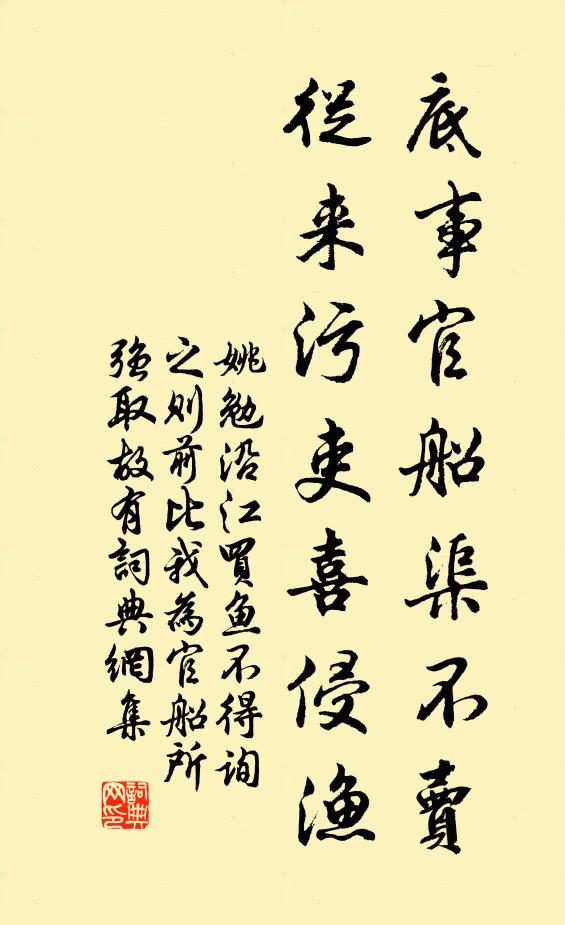 底事官船渠不賣
從来污吏喜侵漁
姚勉沿江買魚不得询
之则前比我為官船所
強取故有詞典網集
詞典网印